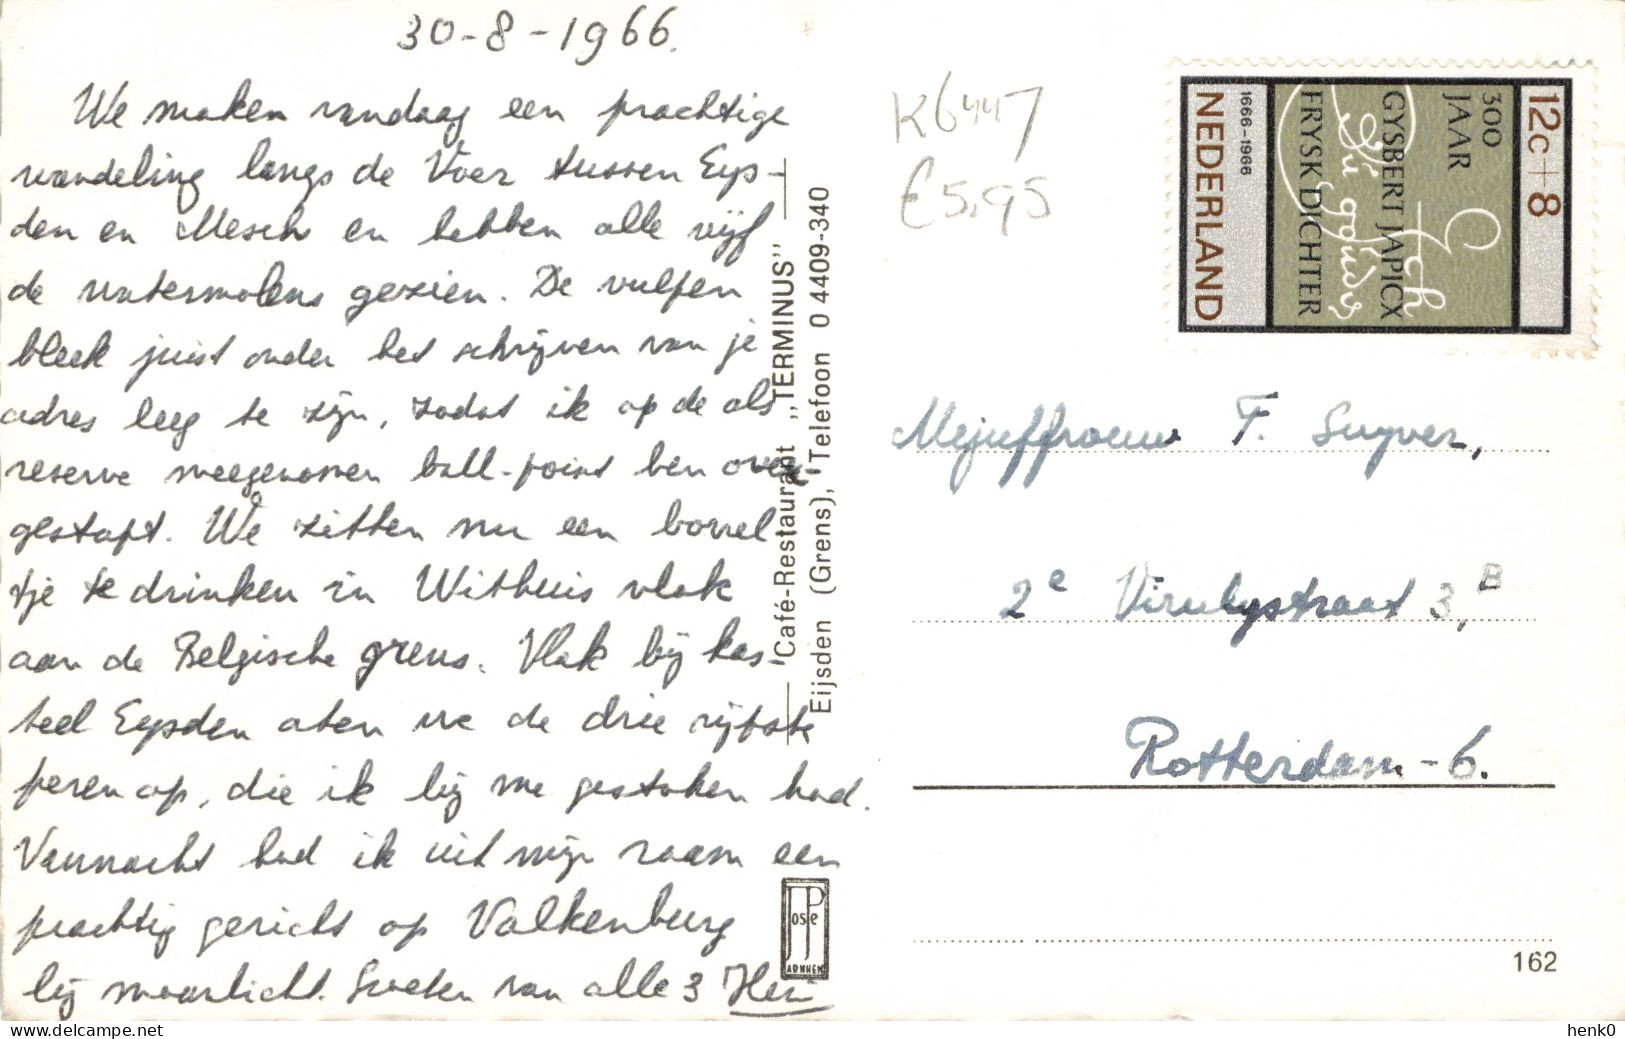 30-8-1966.
We maken vandaag een prachtige
wandeling langs de Voer tussen Eys-
den en Mesch en hebben alle vijf
de watermolens gezien. De vulpen
bleek juist onder het schrijven van je
adres leeg te zijn, zodat ik op de als
reserve meegenomen ball-point ben over
gestapt. We zitten nu een borrel
tje te drinken in Withuis vlak
aan de Belgische grens. Vlak bij kas-
teel Eysden aten we de drie rijpste
peren op, die ik bij me gestoken had.
Vannacht had ik uit mijn raam een
prachtig gezicht op Valkenburg
bij maanlicht. Groeten van alle 3
Café-Restaurant „TERMINUS"
Eijsden (Grens), Telefoon 0 4409-340
JosPe
ARNHEM
K6447
€5,95
12c+8
300
JAAR
GYSBERT JAPICX
FRYSK DICHTER
1666-1966
NEDERLAND
Mejuffrouw F. Suyver,
2e Virulystraat 3,B
Rotterdam-6.
162
henk0